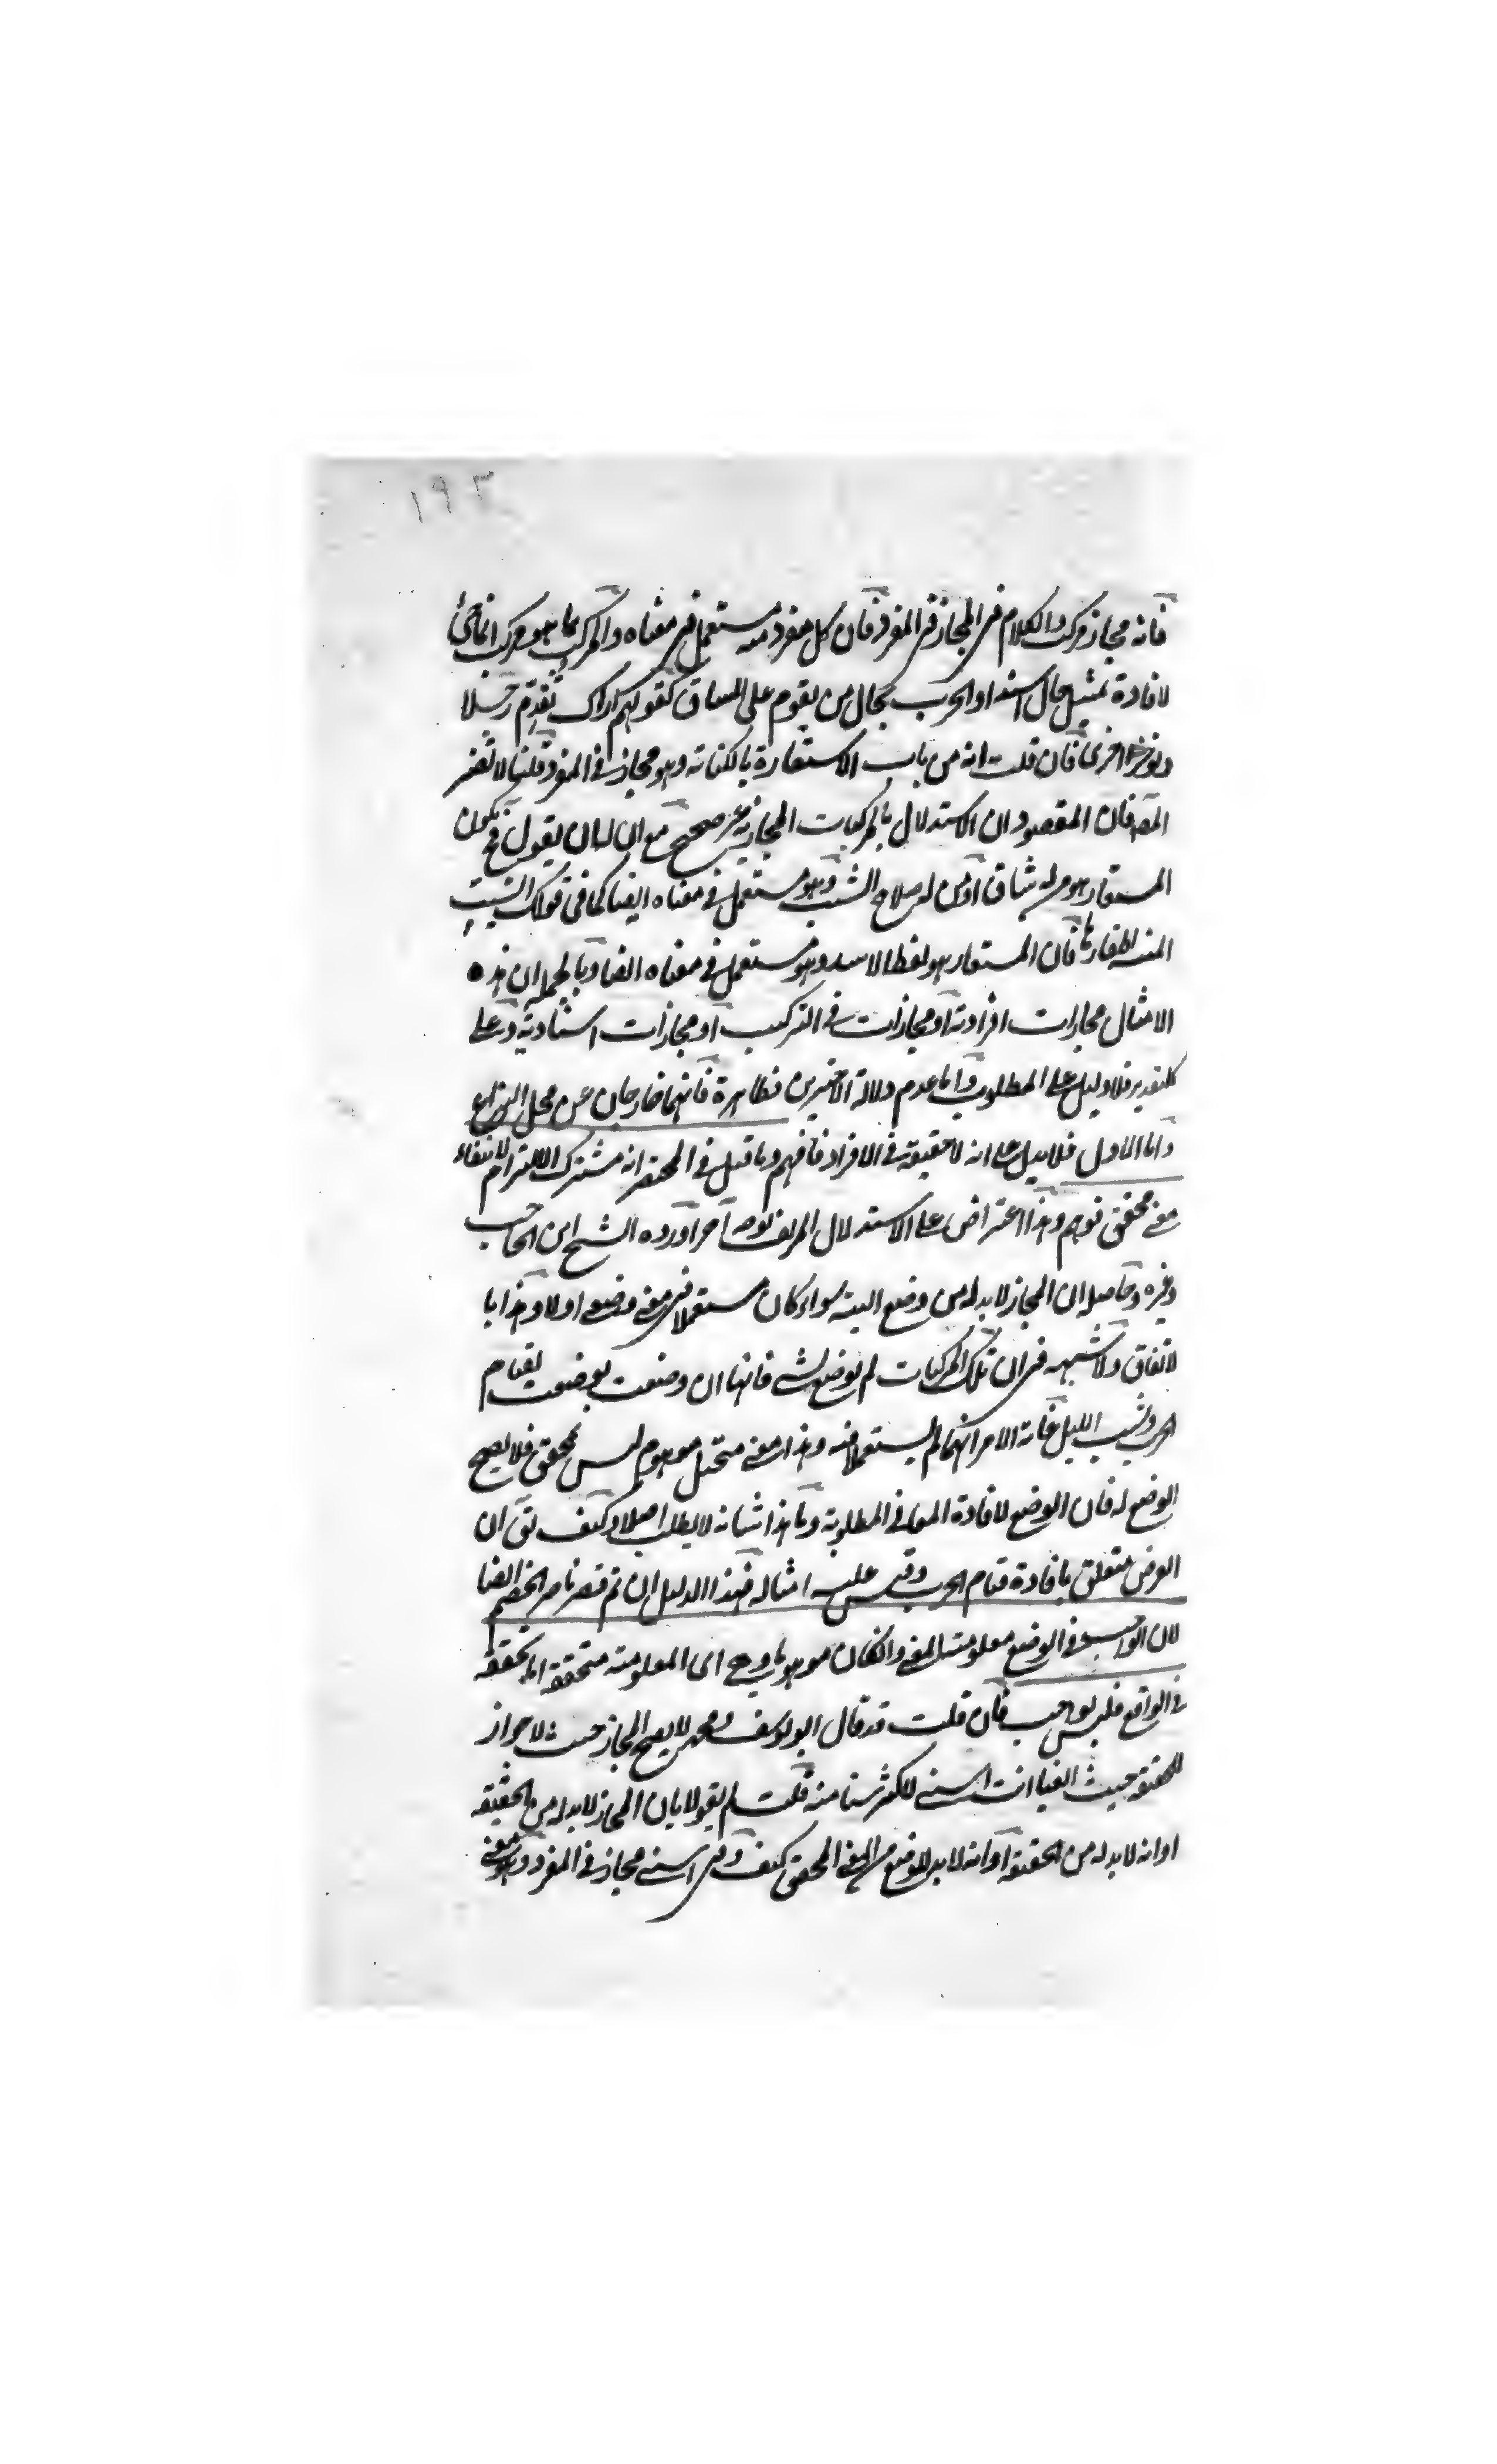 ١٩٣
فانه مجاز مركب والكلام في المجاز في المفرد فان كل مفرد منه مستعمل في معناه والمركب بما هو مركب انما جئ
لافادة تمثيل حال الشدة او الحرب بحال من يقوم على الساق كقولهم اراك تقدم رجلا
وتؤخر اخرى فان قلت انه من باب الاستعارة بالكناية وهو مجاز في المفرد قلنا لا تضر
المص فان المقصود ان الاستدلال بالمركبات المجازية غير صحيح مع ان لسان يقول فح يكون
المستعار هو من له ساق او من له صلاح الشيب وهو مستعمل في معناه ايضا كما في قولك انشبت
المنية اظفارها فان المستعار هو لفظ الاسد وهو مستعمل في معناه ايضا وبالجملة ان هذه
الامثال مجازات افرادية او مجازات في التركيب او مجازات اسنادية وعلى
كل تقدير فلا دليل على المطلوب واما عدم دلالة الاخيرين فظاهرة فانهما خارجان عن محل النزاع
واما الاول فلا يدل على انه لا حقيقة في الافراد فافهم وما قيل في المختصر انه مشترك الالتزام لانتفاء
معنى محقق فوهم وهذا اعتراض على الاستدلال المزيف بوجه آخر اورده الشيخ ابن الحاجب
وغيره وحاصله ان المجاز لا بد له من وضع البتة سواء كان مستعملا في معنى وضعي اولا وهذا با
لاتفاق ولا شبهه في ان تلك المركبات لم توضع لشئ فانها ان وضعت بوضعت لقيام
الحرب وشيب الليل غاية الامر انهما لم يستعملا فيه وهذا معنى متخيل موهوم ليس بمحقق فلا يصح
الوضع له فان الوضع لافادة المعاني المطلوبة وما هذا شانه لا يطلب اصلا وكيف يق ان
الغرض متعلق بافادة قيام الحرب وقس عليه امثاله فهذا الدليل ان تم فتصر ناصر الخصم ايضا
لان الواجب في الوضع معلومية المعنى وان كان موهوما وهي اى المعلومية متحققة اما تحققه
في الواقع فليس بواجب فان قلت قد قال ابو يوسف ومحمد لا يصح المجاز حيث لا جواز
للحقيقة حيث الغيا انت ابني للاكبر سنا منه قلت لم يقولا بان المجاز لا بد له من الحقيقة
او انه لا بد له من الحقيقة او انه لا بد للوضع من المعنى المحقق كيف وفي ابني مجاز في المفرد وله معنى